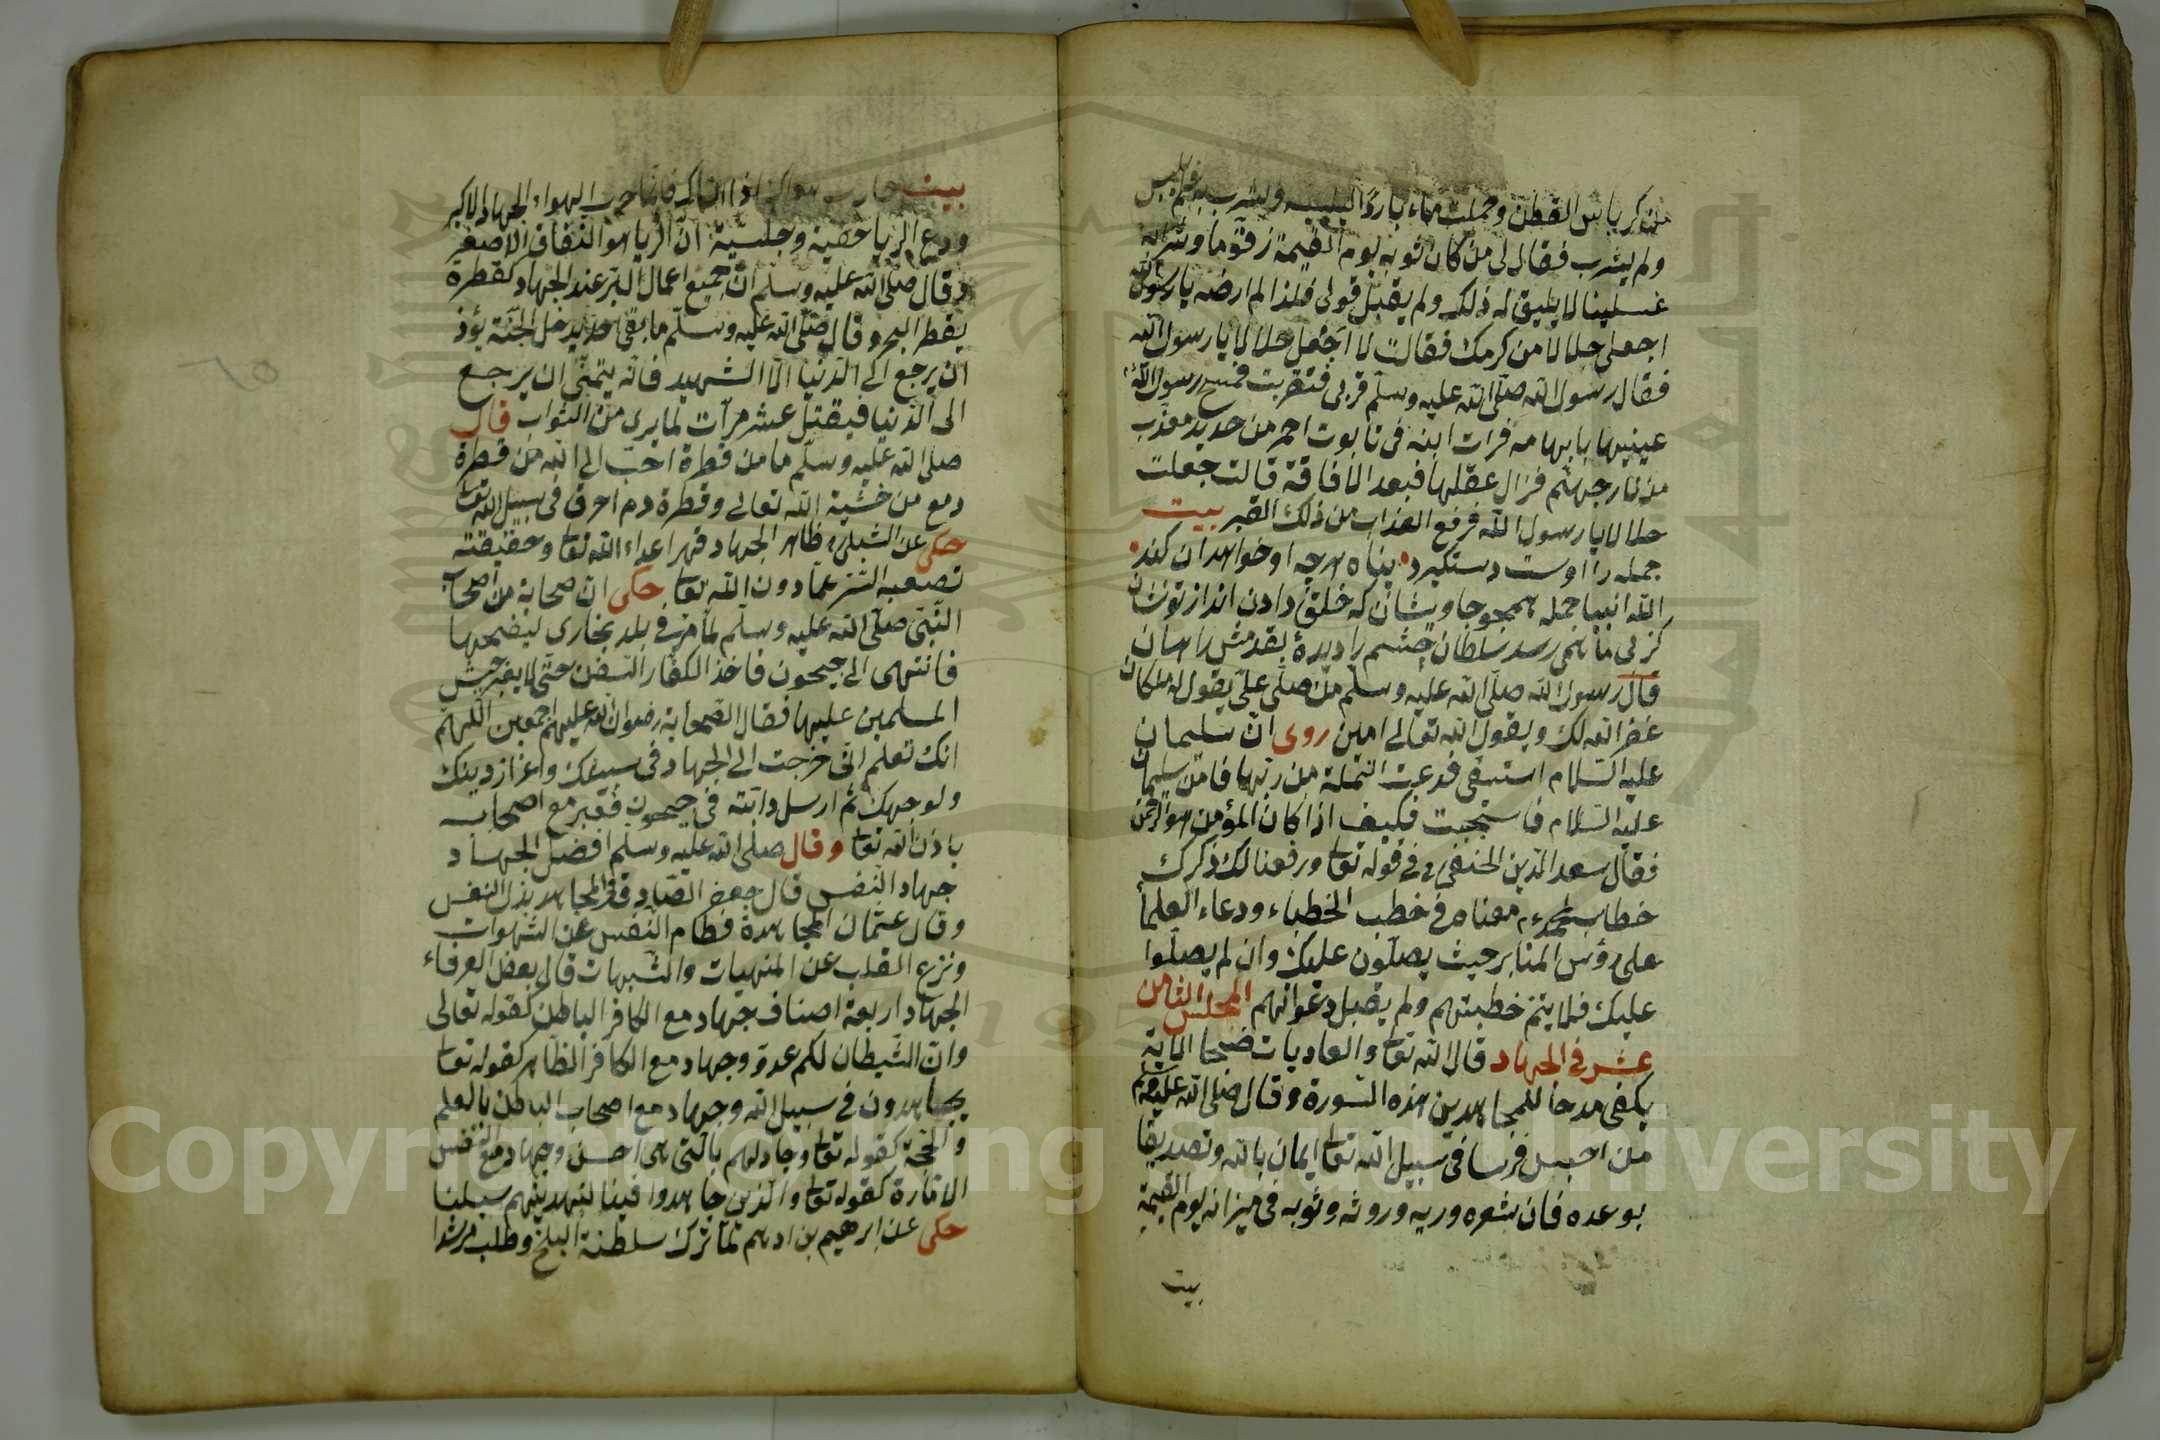 من كرباس القطن وجعلت ماء باردا ليلبسه ويشرب فلم يلبس
ولم يشرب فقال لى من كان ثوبه يوم القيمة زقوما وشرابه
غسلينا لا يليق له ذلك ولم يقبل قولى فلذا لم ارضه يا رسول الله
اجعلى حلالا من كرمك فقالت لا اجعل حلالا يا رسول الله
فقال رسول الله صلى الله عليه وسلم قربى فتقربت فمسح رسول الله
عينيها بابهامه فرات ابنه فى تابوت احمر من حديد معذب
من نار جهنم فزال عقلها فبعد الافاقة قالت جعلت
حلالا يا رسول الله فرفع العذاب من ذلك القبر بيت
جمله را اوست دستكيرد پناه هرچه او خواهد ان كند
الله انبيا جمله همچو جاويشان كه خلق دادن انداز تو نشان
كزلى ما نمى رسد سلطان چشم را ديده بقدمش راسان
قال رسول الله صلى الله عليه وسلم من صلى على يقول له ملكان
غفر الله لك ويقول الله تعالى امين روى ان سليمان
عليه السلام استسقى فدعت النملة من ربها فامن سليمان
عليه السلام فاستجبت فكيف اذا كان المؤمن هو الرحمن
فقال سعد الدين الحنفى فى قوله تعا ورفعنا لك ذكرك
خطاب لمحمد معناه فى خطب الخطباء ودعاء العلما
على رؤس المنابر حيث يصلون عليك وان لم يصلوا
عليك فلا يتم خطبتهم ولم يقبل دعوانهم المجلس الثامن
عشر فى الجهاد قال الله تعا والعاديات ضبحا الاية
يكفى مدحا للمجاهدين هذه السورة وقال صلى الله عليه وسلم
من احبس فرسا فى سبيل الله تعا ايمان بالله وتصديقا
بوعده فان شعره وريه وروثه وثوبه فى ميزانه يوم القيمة
بيت
بيت حارب هواك اذا انما حرب الهواء الجهاد الاكبر
ودع الريا خفية وجلسية ان الريا هو النفاق الاصغر
وقال صلى الله عليه وسلم ان جميع اعمال البر عند الجهاد كقطرة
يقطر البحر وقال صلى الله عليه وسلم ما بقى احد يدخل الجنة يؤذ
ان يرجع الى الدنيا الا الشهيد فانه يتمنى ان يرجع
الى الدنيا فيقتل عشر مرات لما يرى من الثواب قال
صلى الله عليه وسلم ما من قطرة احب الى الله من قطرة
دمع من خشية الله تعالى وقطرة دم احرق فى سبيل الله تعا
حكى عن الشبلى ظاهر الجهاد قهر اعداء الله تعا وحقيقته
تصعبه الشر عما دون الله تعا حكى ان صحابة من اصحاب
النبى صلى الله عليه وسلم لما مر فى بلد بخارى ليفتحها
فانتهى الى جيحون فاخذ الكفار السفن حتى لا يعبر جيش
المسلمين عليها فقال الصحابة رضوان الله عليهم اجمعين اللهم
انك تعلم انى خرجت الى الجهاد فى سبيلك واعزاز دينك
ولوجهك ثم ارسل دابته فى جيحون فعبر مع اصحابه
باذن الله تعا وقال صلى الله عليه وسلم افضل الجهاد
جهاد النفس قال جعفر الصادق المجاهد بذل النفس
وقال عثمان المجاهدة فطام النفس عن الشهوات
ونزع القلب عن المنهيات والشبهات قال بعض العرفاء
الجهاد اربعة اصناف جهاد مع الكافر الباطن كقوله تعالى
وان الشيطان لكم عدو وجهاد مع الكافر الظاهر كقوله تعا
يجاهدون فى سبيل الله وجهاد مع اصحاب الباطن بالعلم
والحجة كقوله تعا وجادلهم بالتى هى احسن وجهاد مع النفس
الامارة كقوله تعا والذين جاهدوا فينا لنهدينهم سبلنا
حكى عن ابرهيم بن ادهم لما ترك سلطنة البلخ وطلب مرشدا
٦٥
Copyright © King Saud University
1957